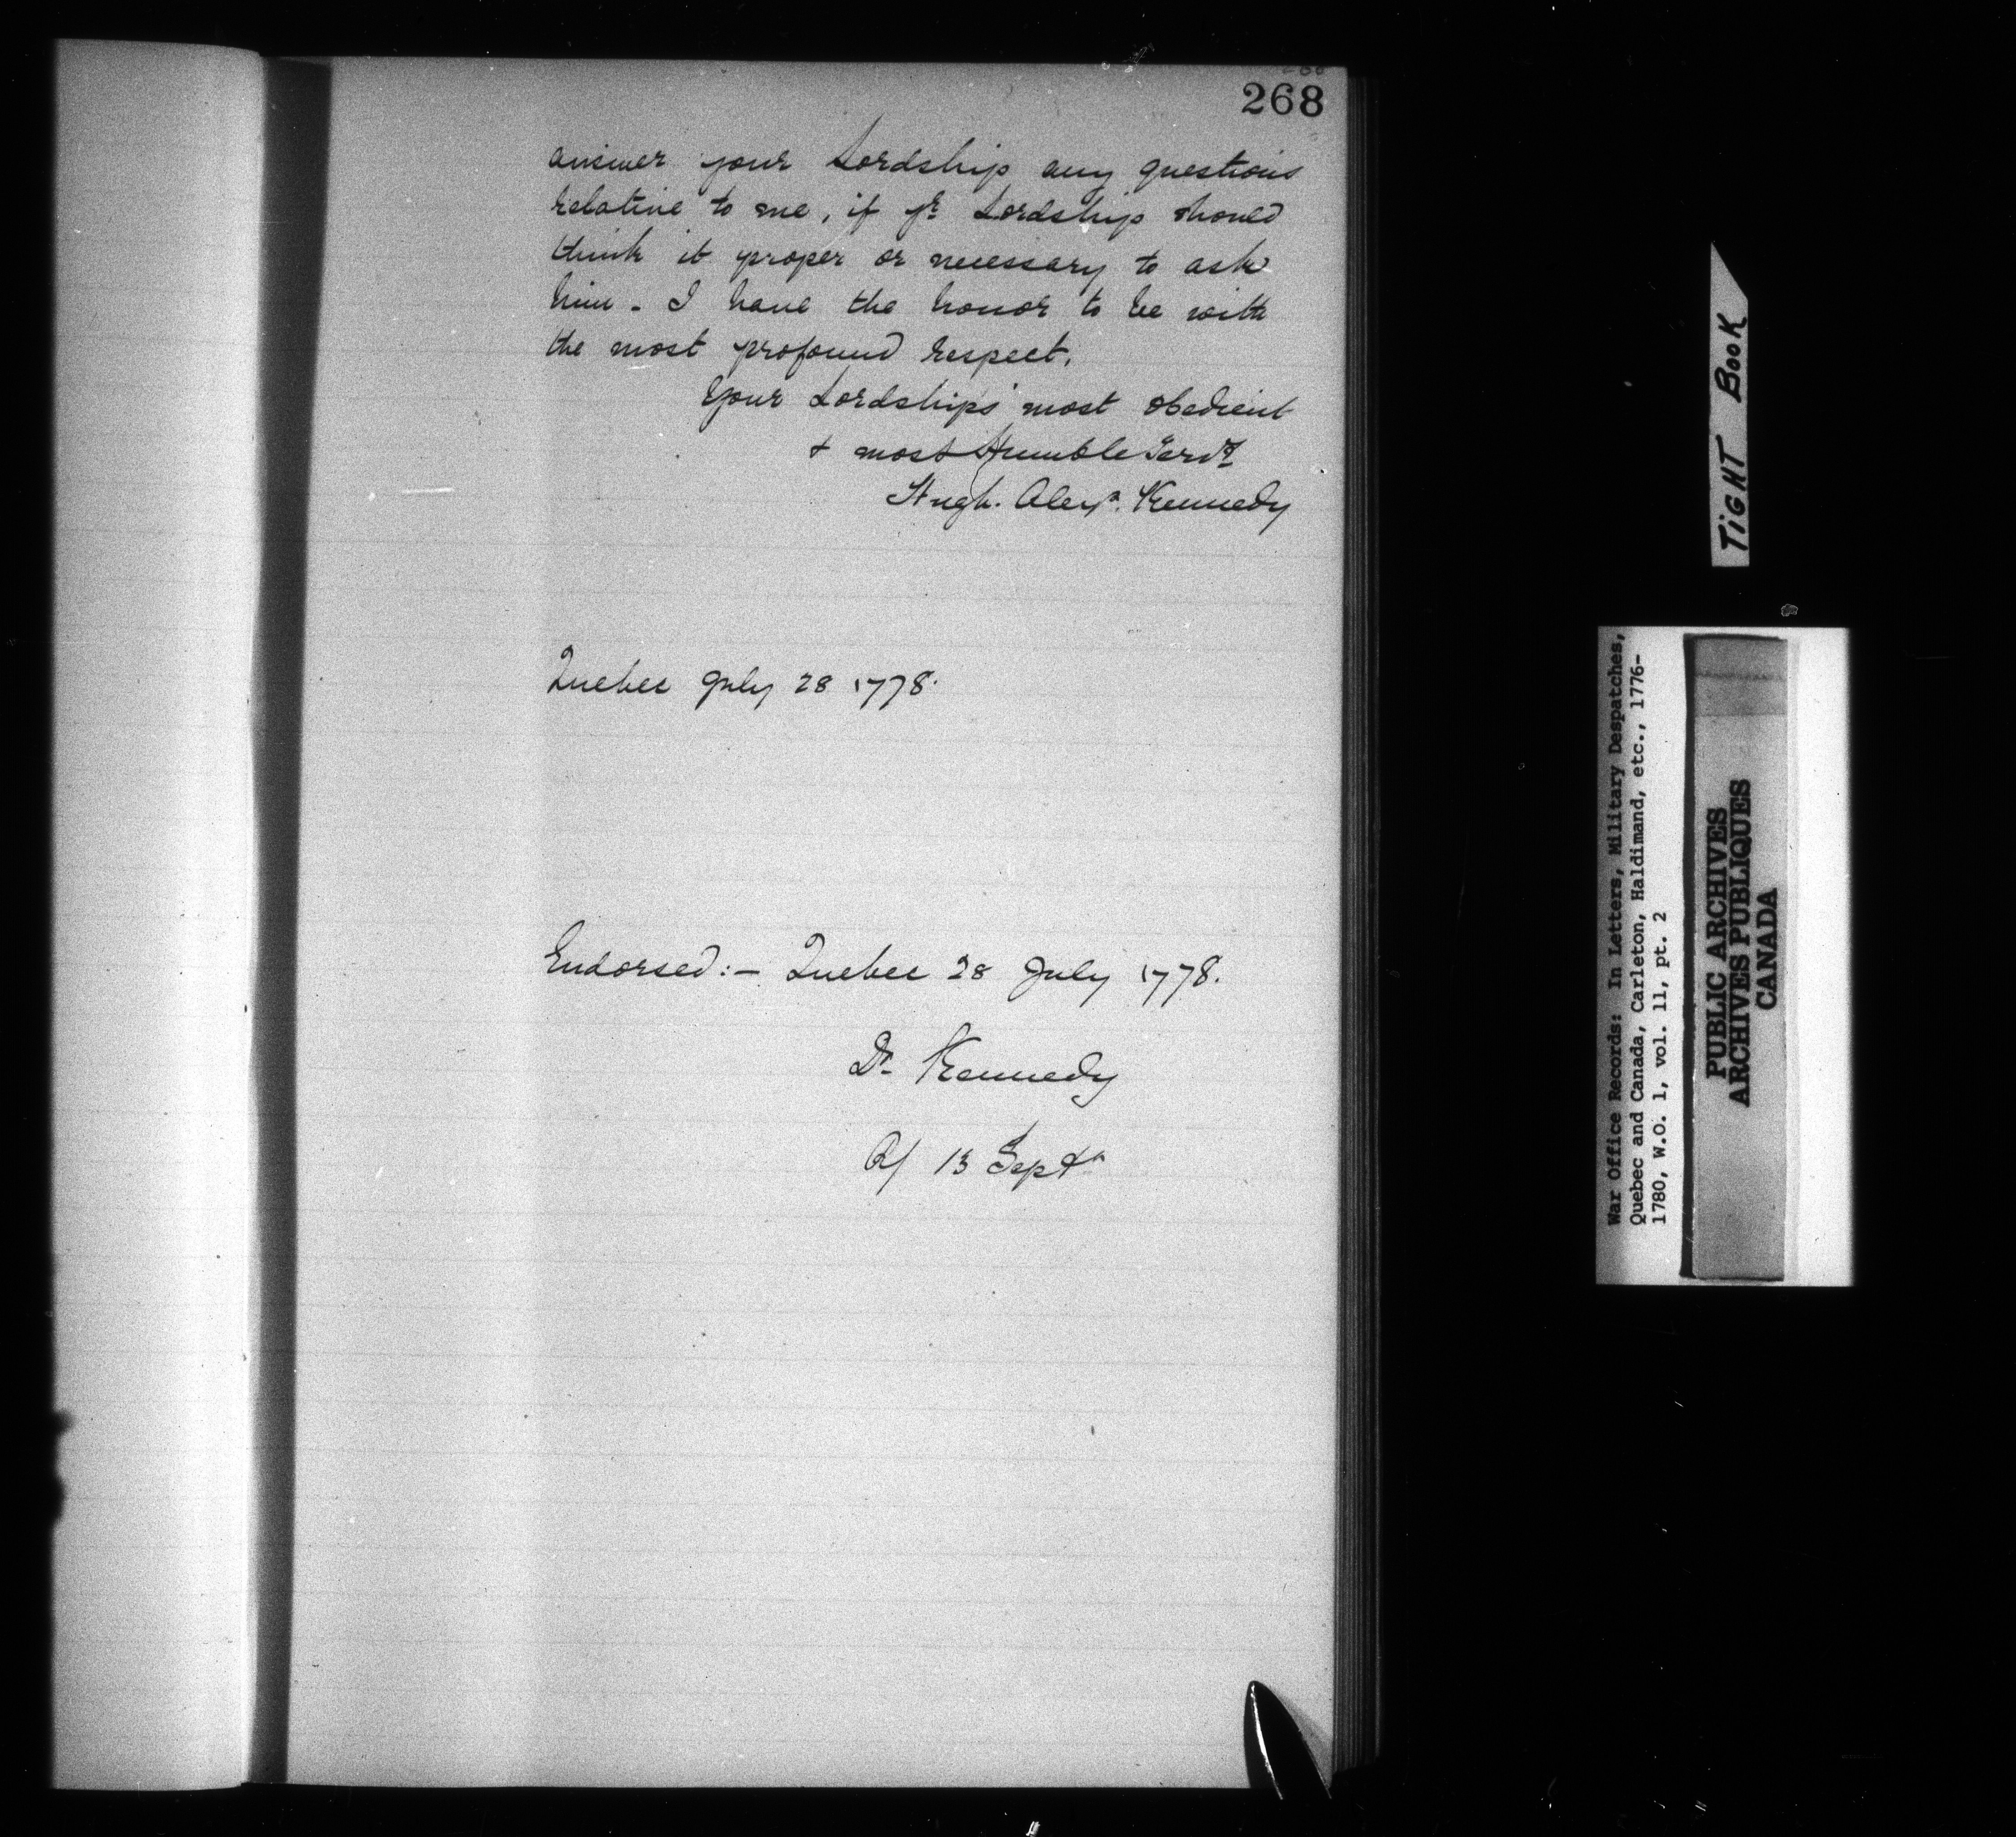 268
answer your Lordship any questions
relative to me, if yr Lordship should
think it proper or necessary to ask
him - I have the honor to be with
the most profound respect.
Your Lordships most obedient
+ most Humble Servt
Hugh. Alexr. Kennedy
Quebec July 28 1778.
Endorsed:- Quebec 28 July 1778.
Dr Kennedy
A/ 13 Septr
TiGHT BooK
War Office Records: In Letters, Military Despatches,
Quebec and Canada, Carleton, Haldimand, etc., 1776-
1780, W.O. 1, vol. 11, pt. 2
PUBLIC ARCHIVES
ARCHIVES PUBLIQUES
CANADA